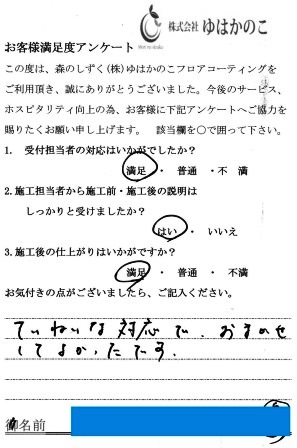 株式会社 ゆはかのこ
お客様満足度アンケート
この度は、森のしずく(株)ゆはかのこフロアコーティングを
ご利用頂き、誠にありがとうございました。今後のサービス、
ホスピタリティ向上の為、お客様に下記アンケートへご協力を
賜りたくお願い申し上げます。 該当欄を○で囲って下さい。
1. 受付担当者の対応はいかがでしたか?
満足 ・ 普通 ・不 満
2.施工担当者から施工前・施工後の説明は
しっかりと受けましたか?
はい ・ いいえ
3.施工後の仕上がりはいかがですか?
満足 ・ 普通 ・ 不満
お気付きの点がございましたら、ご記入ください。
ていねいな対応で、おまかせ
してよかったです。
御名前